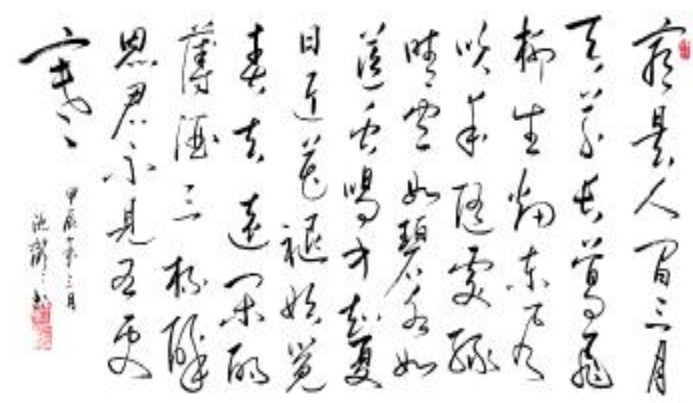 最是人间三月
天草长莺飞
柳生烟东风
吹来随处绿
晴空如碧水如
蓝虫鸣才知夏
日近花褪始觉
春去远闲酌
薄酒三杯醉
思君不见五更
寒
甲辰年三月